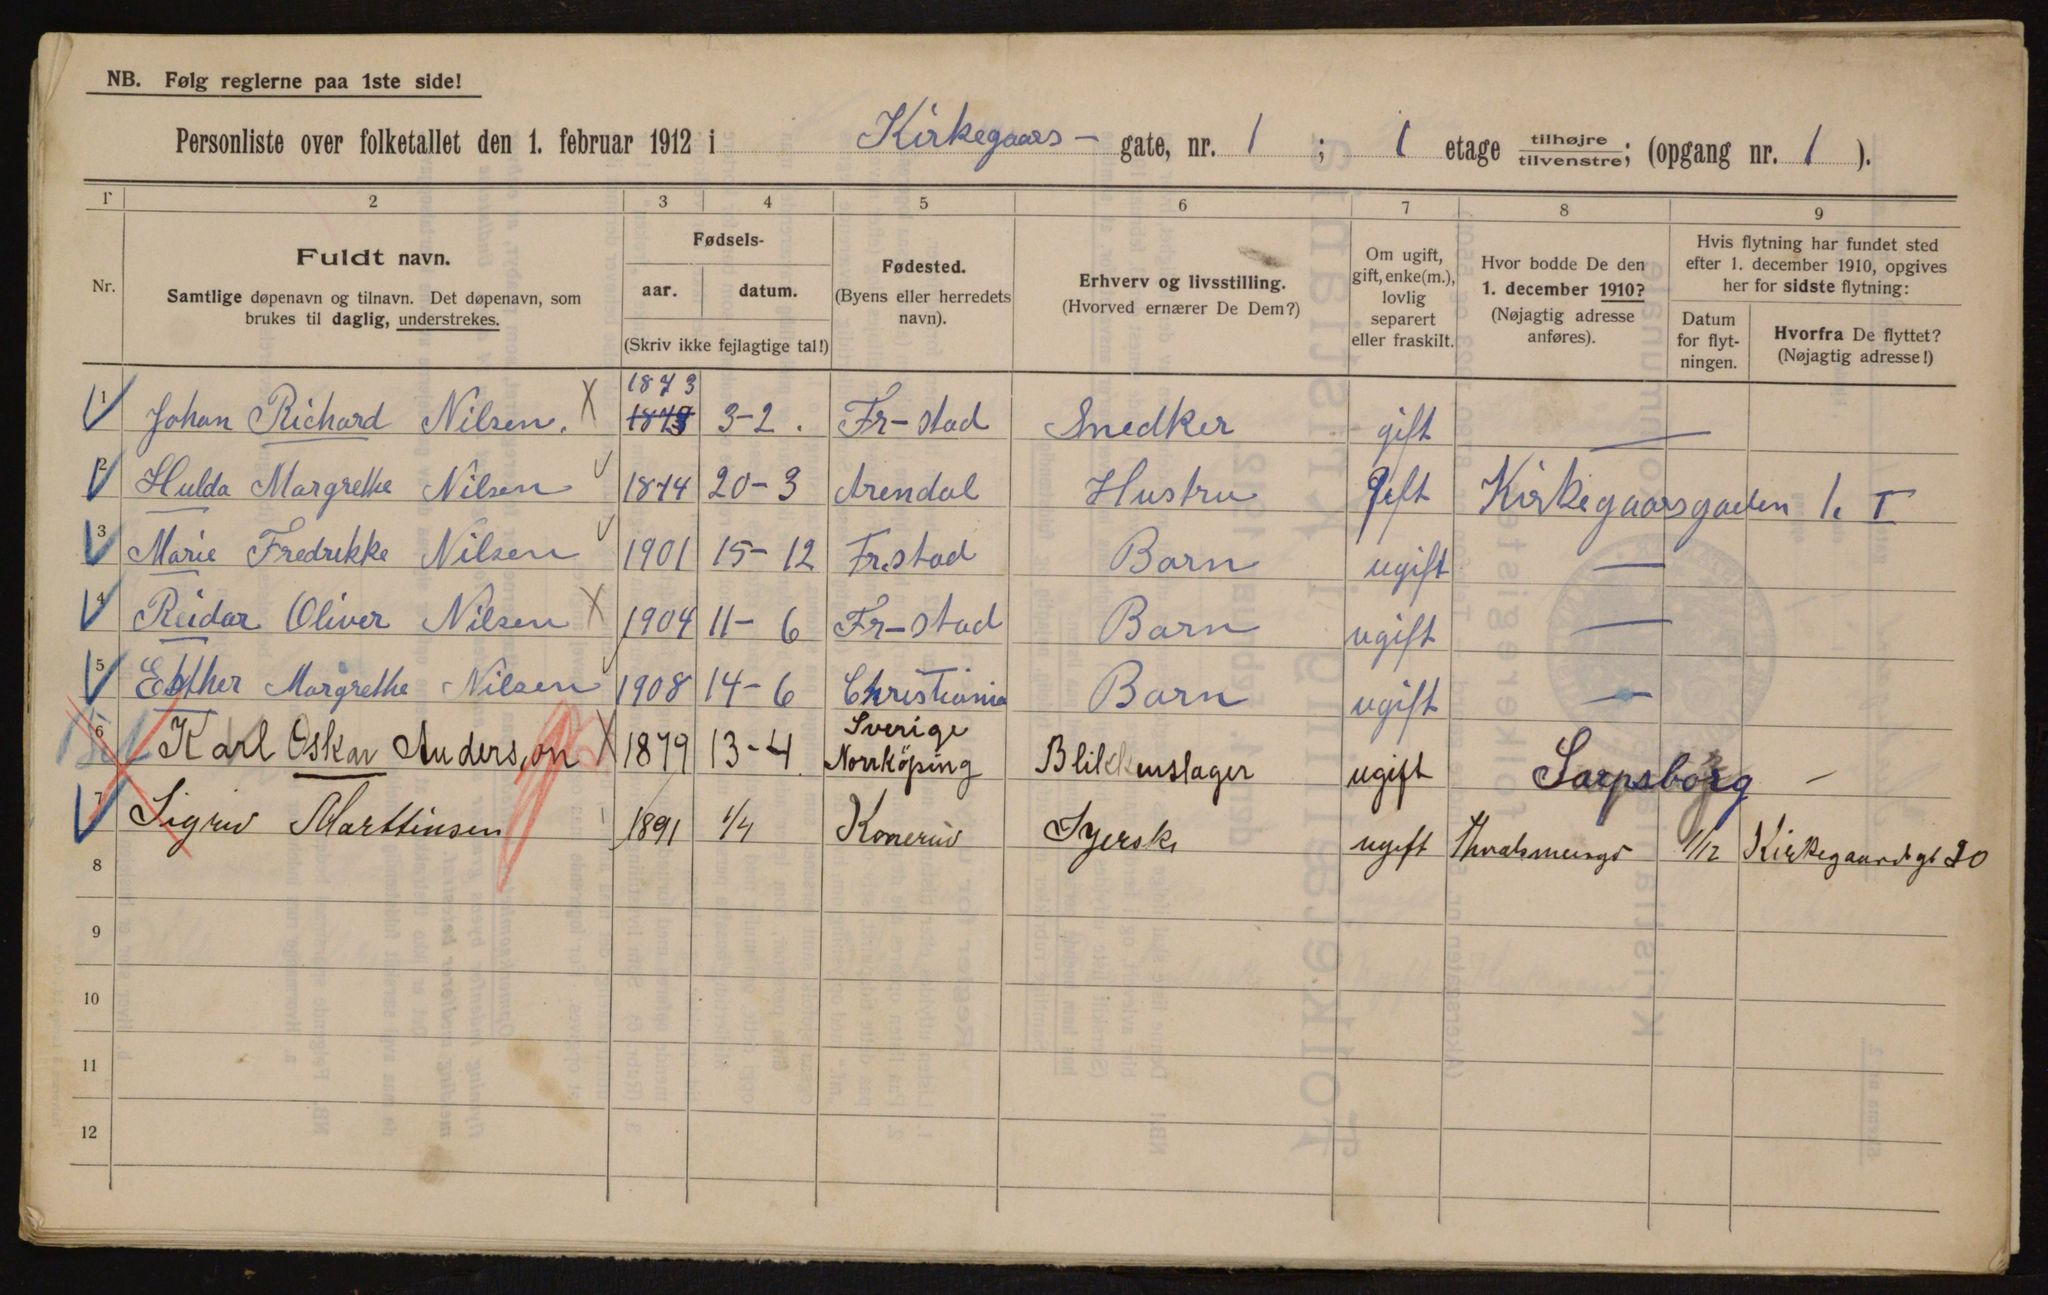 NB. Følg reglerne paa 1ste side!
Personliste over folketallet den 1. februar 1912 i Kirkegaars- gate, nr. 1 ; 1 etage tilhøjre tilvenstre; (opgang nr. 1 ).
1 2 3 4 5 6 7 8 9
Nr.
Fuldt navn.
Samtlige døpenavn og tilnavn. Det døpenavn, som
brukes til daglig, understrekes.
Fødsels-
aar. datum.
(Skriv ikke fejlagtige tal!)
Fødested.
(Byens eller herredets
navn).
Erhverv og livsstilling.
(Hvorved ernærer De Dem?)
Om ugift,
gift, enke(m.),
lovlig
separert
eller fraskilt.
Hvor bodde De den
1. december 1910?
(Nøjagtig adresse
anføres).
Hvis flytning har fundet sted
efter 1. december 1910, opgives
her for sidste flytning:
Datum
for flyt-
ningen.
Hvorfra De flyttet?
(Nøjagtig adresse!)
1873
1 Johan Richard Nilsen. X 3-2. Fr-stad Snedker gift —
2 Hulda Margrethe Nilsen 1874 20-3 Arendal Hustru Gift Kirkegaarsgaden 1. I
3 Marie Fredrikke Nilsen 1901 15-12 Fr.stad Barn ugift —
4 Reidar Oliver Nilsen X 1904 11-6 Fr-stad Barn ugift —
5 Esther Margrethe Nilsen 1908 14-6 Christiania Barn ugift —
Sverige
6 Karl Oskar Anderson X 1879 13-4 Norrköping Blikkenslager ugift Sarpsborg —
7 Sigrid Marttinsen 1891 1/4 Syerske ugift 1/12 Kirkegaardsgt 20
8
9
10
11
12